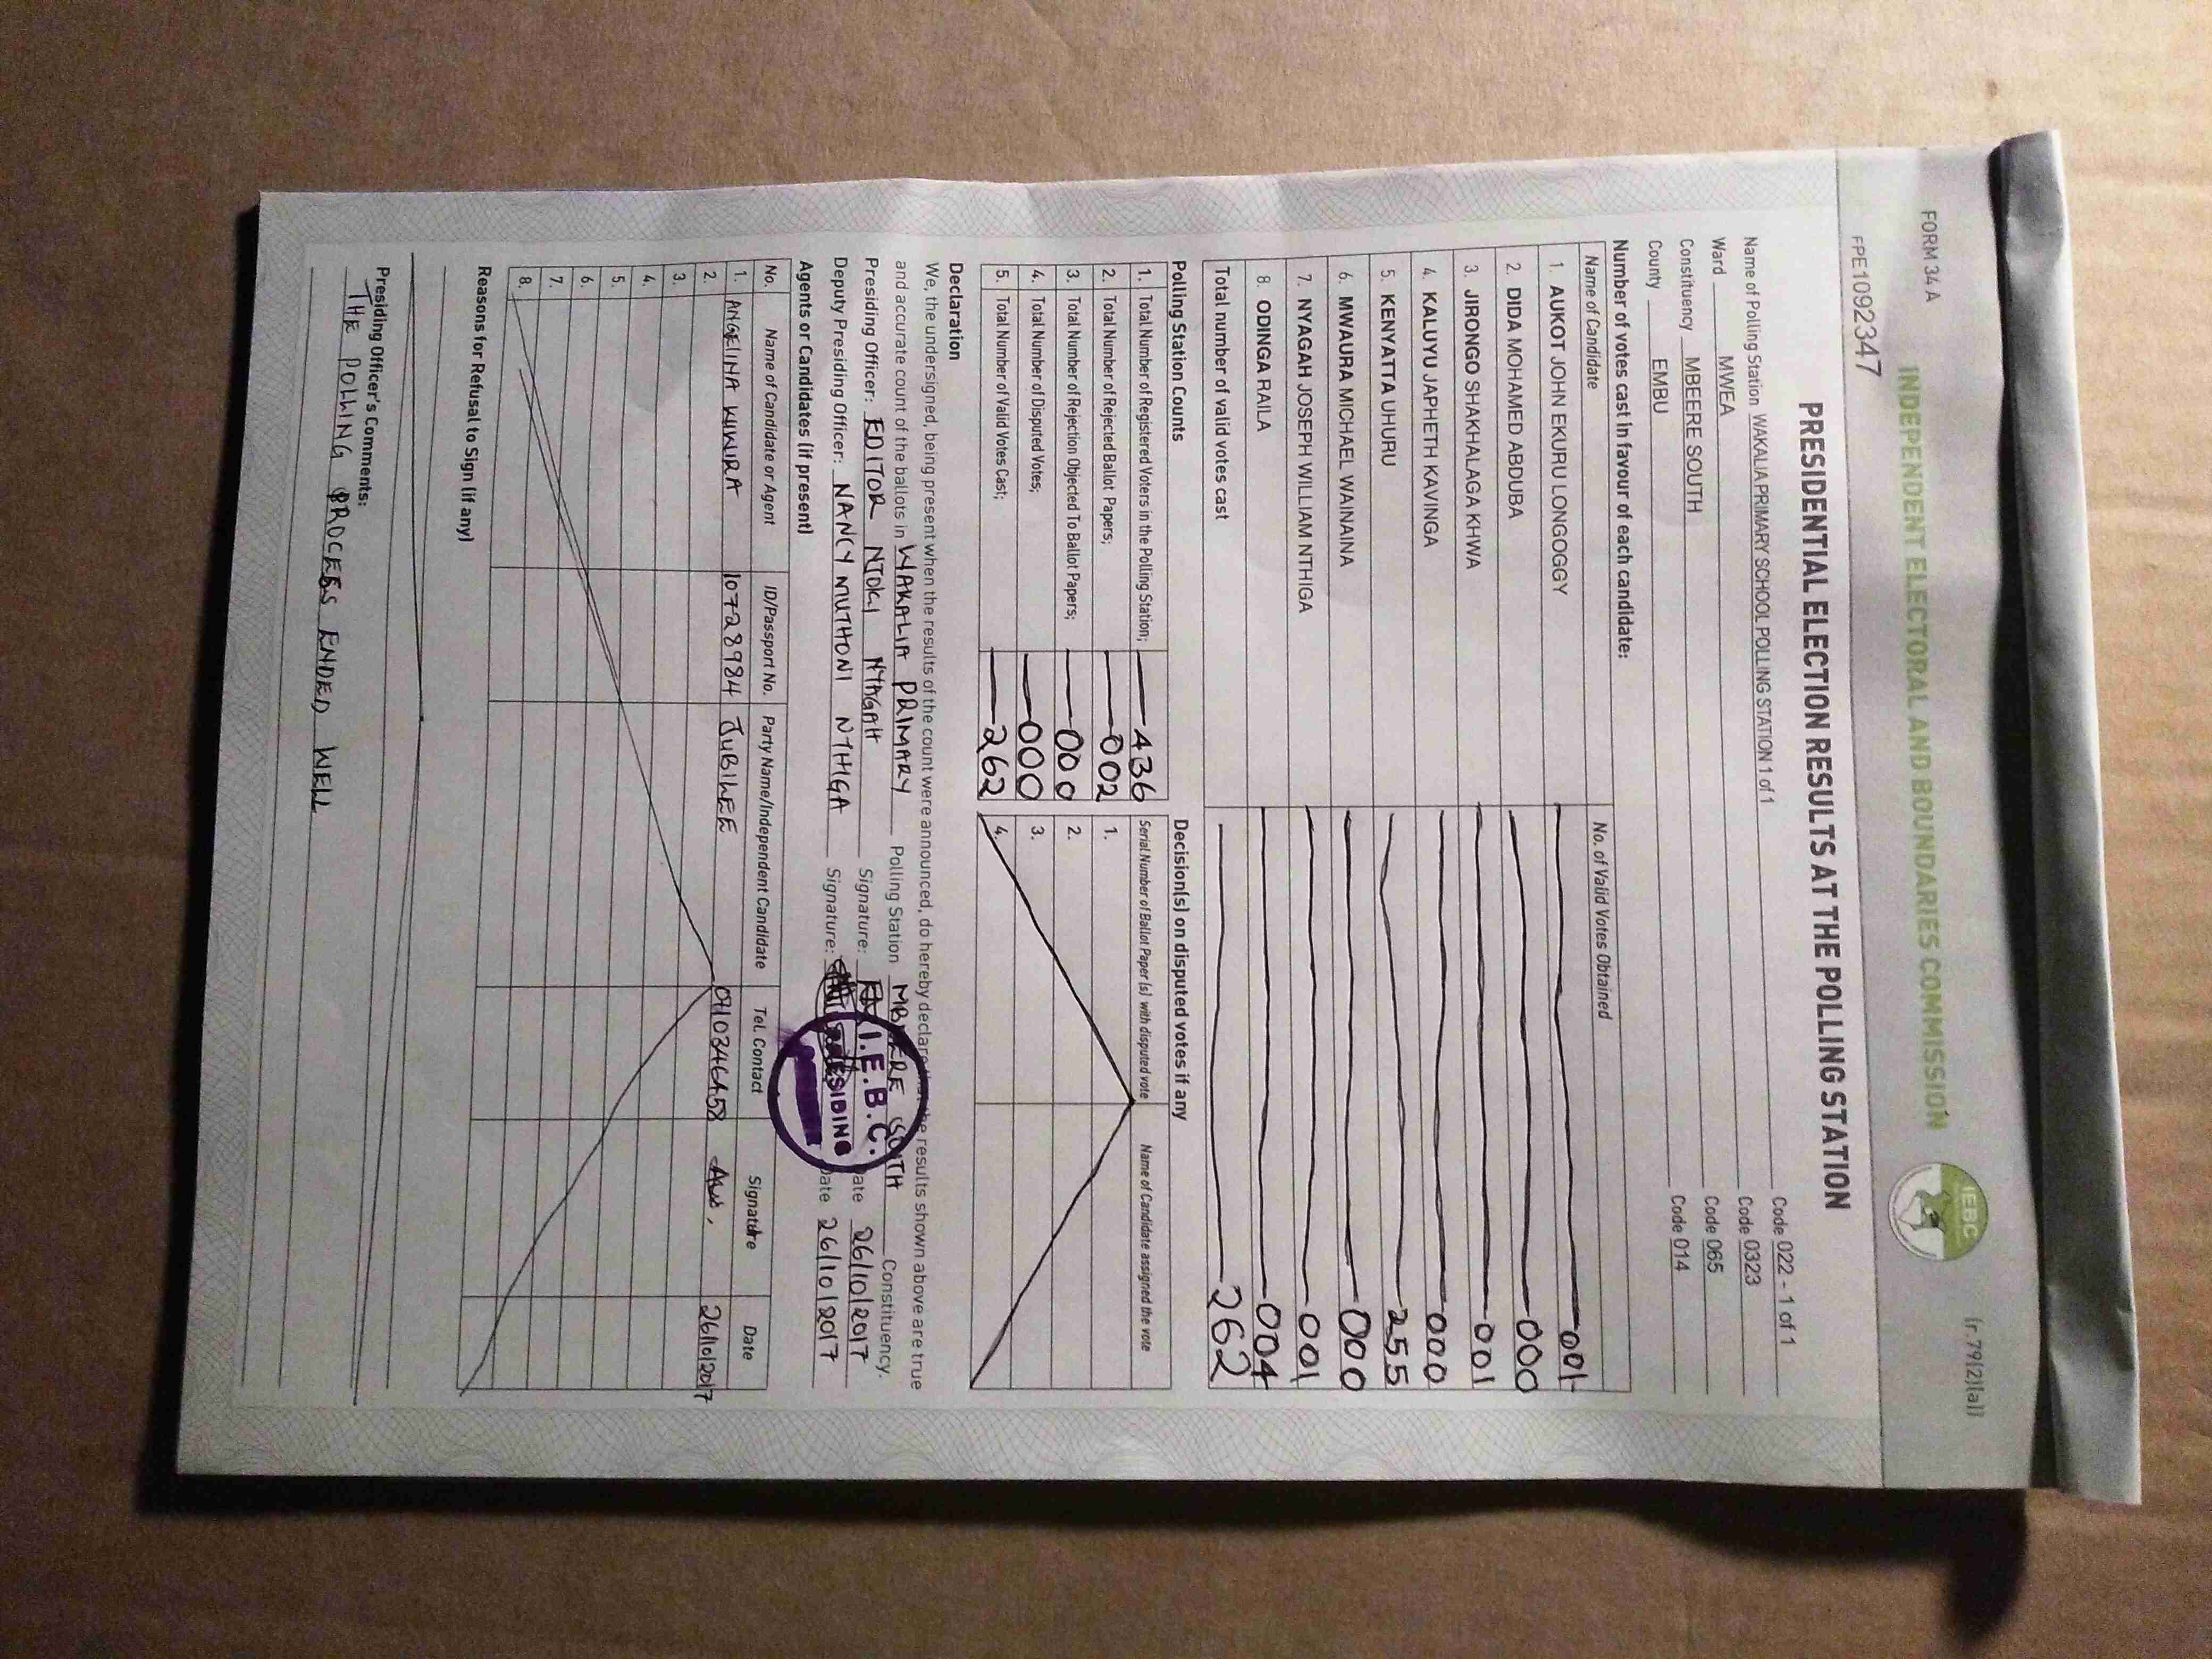 FORM 34 A
(r.79(2)(a))
INDEPENDENT ELECTORAL AND BOUNDARIES COMMISSION
IEBC
FPE1092347
PRESIDENTIAL ELECTION RESULTS AT THE POLLING STATION
Name of Polling Station WAKALIA PRIMARY SCHOOL POLLING STATION 1 of 1 Code 022 - 1 of 1
Ward MWEA Code 0323
Constituency MBEERE SOUTH Code 065
County EMBU Code 014
Number of votes cast in favour of each candidate:
Name of Candidate No. of Valid Votes Obtained
1. AUKOT JOHN EKURU LONGOGGY 001
2. DIDA MOHAMED ABDUBA 000
3. JIRONGO SHAKHALAGA KHWA 001
4. KALUYU JAPHETH KAVINGA 000
5. KENYATTA UHURU 255
6. MWAURA MICHAEL WAINAINA 000
7. NYAGAH JOSEPH WILLIAM NTHIGA 001
8 ODINGA RAILA 004
Total number of valid votes cast 262
Polling Station Counts Decision(s) on disputed votes if any
1. Total Number of Registered Voters in the Polling Station; 436 Serial Number of Ballot Paper (s) with disputed vote Name of Candidate assigned the vote
2. Total Number of Rejected Ballot Papers; 002 1.
3. Total Number of Rejection Objected To Ballot Papers; 000 2.
4. Total Number of Disputed Votes; 000 3.
5. Total Number of Valid Votes Cast; 262 4.
Declaration
We, the undersigned, being present when the results of the count were announced, do hereby declare that the results shown above are true
and accurate count of the ballots in WAKALIA PRIMARY Polling Station MBEERE SOUTH Constituency.
Presiding Officer: EDITOR NJOKI NYAGAH Signature: Date 26/10/2017
Deputy Presiding Officer: NANCY MUTHONI NTHIGA Signature: Date 26/10/2017
I.E.B.C.
PRESIDING
Agents or Candidates (if present)
No. Name of Candidate or Agent ID/Passport No. Party Name/Independent Candidate Tel. Contact Signature Date
1. ANGELINA KUWIRA 10728984 JUBILEE 26/10/2017
2.
3.
4.
5.
6.
7.
8.
Reasons for Refusal to Sign (if any)
Presiding Officer's Comments:
THE POLLING PROCESS ENDED WELL